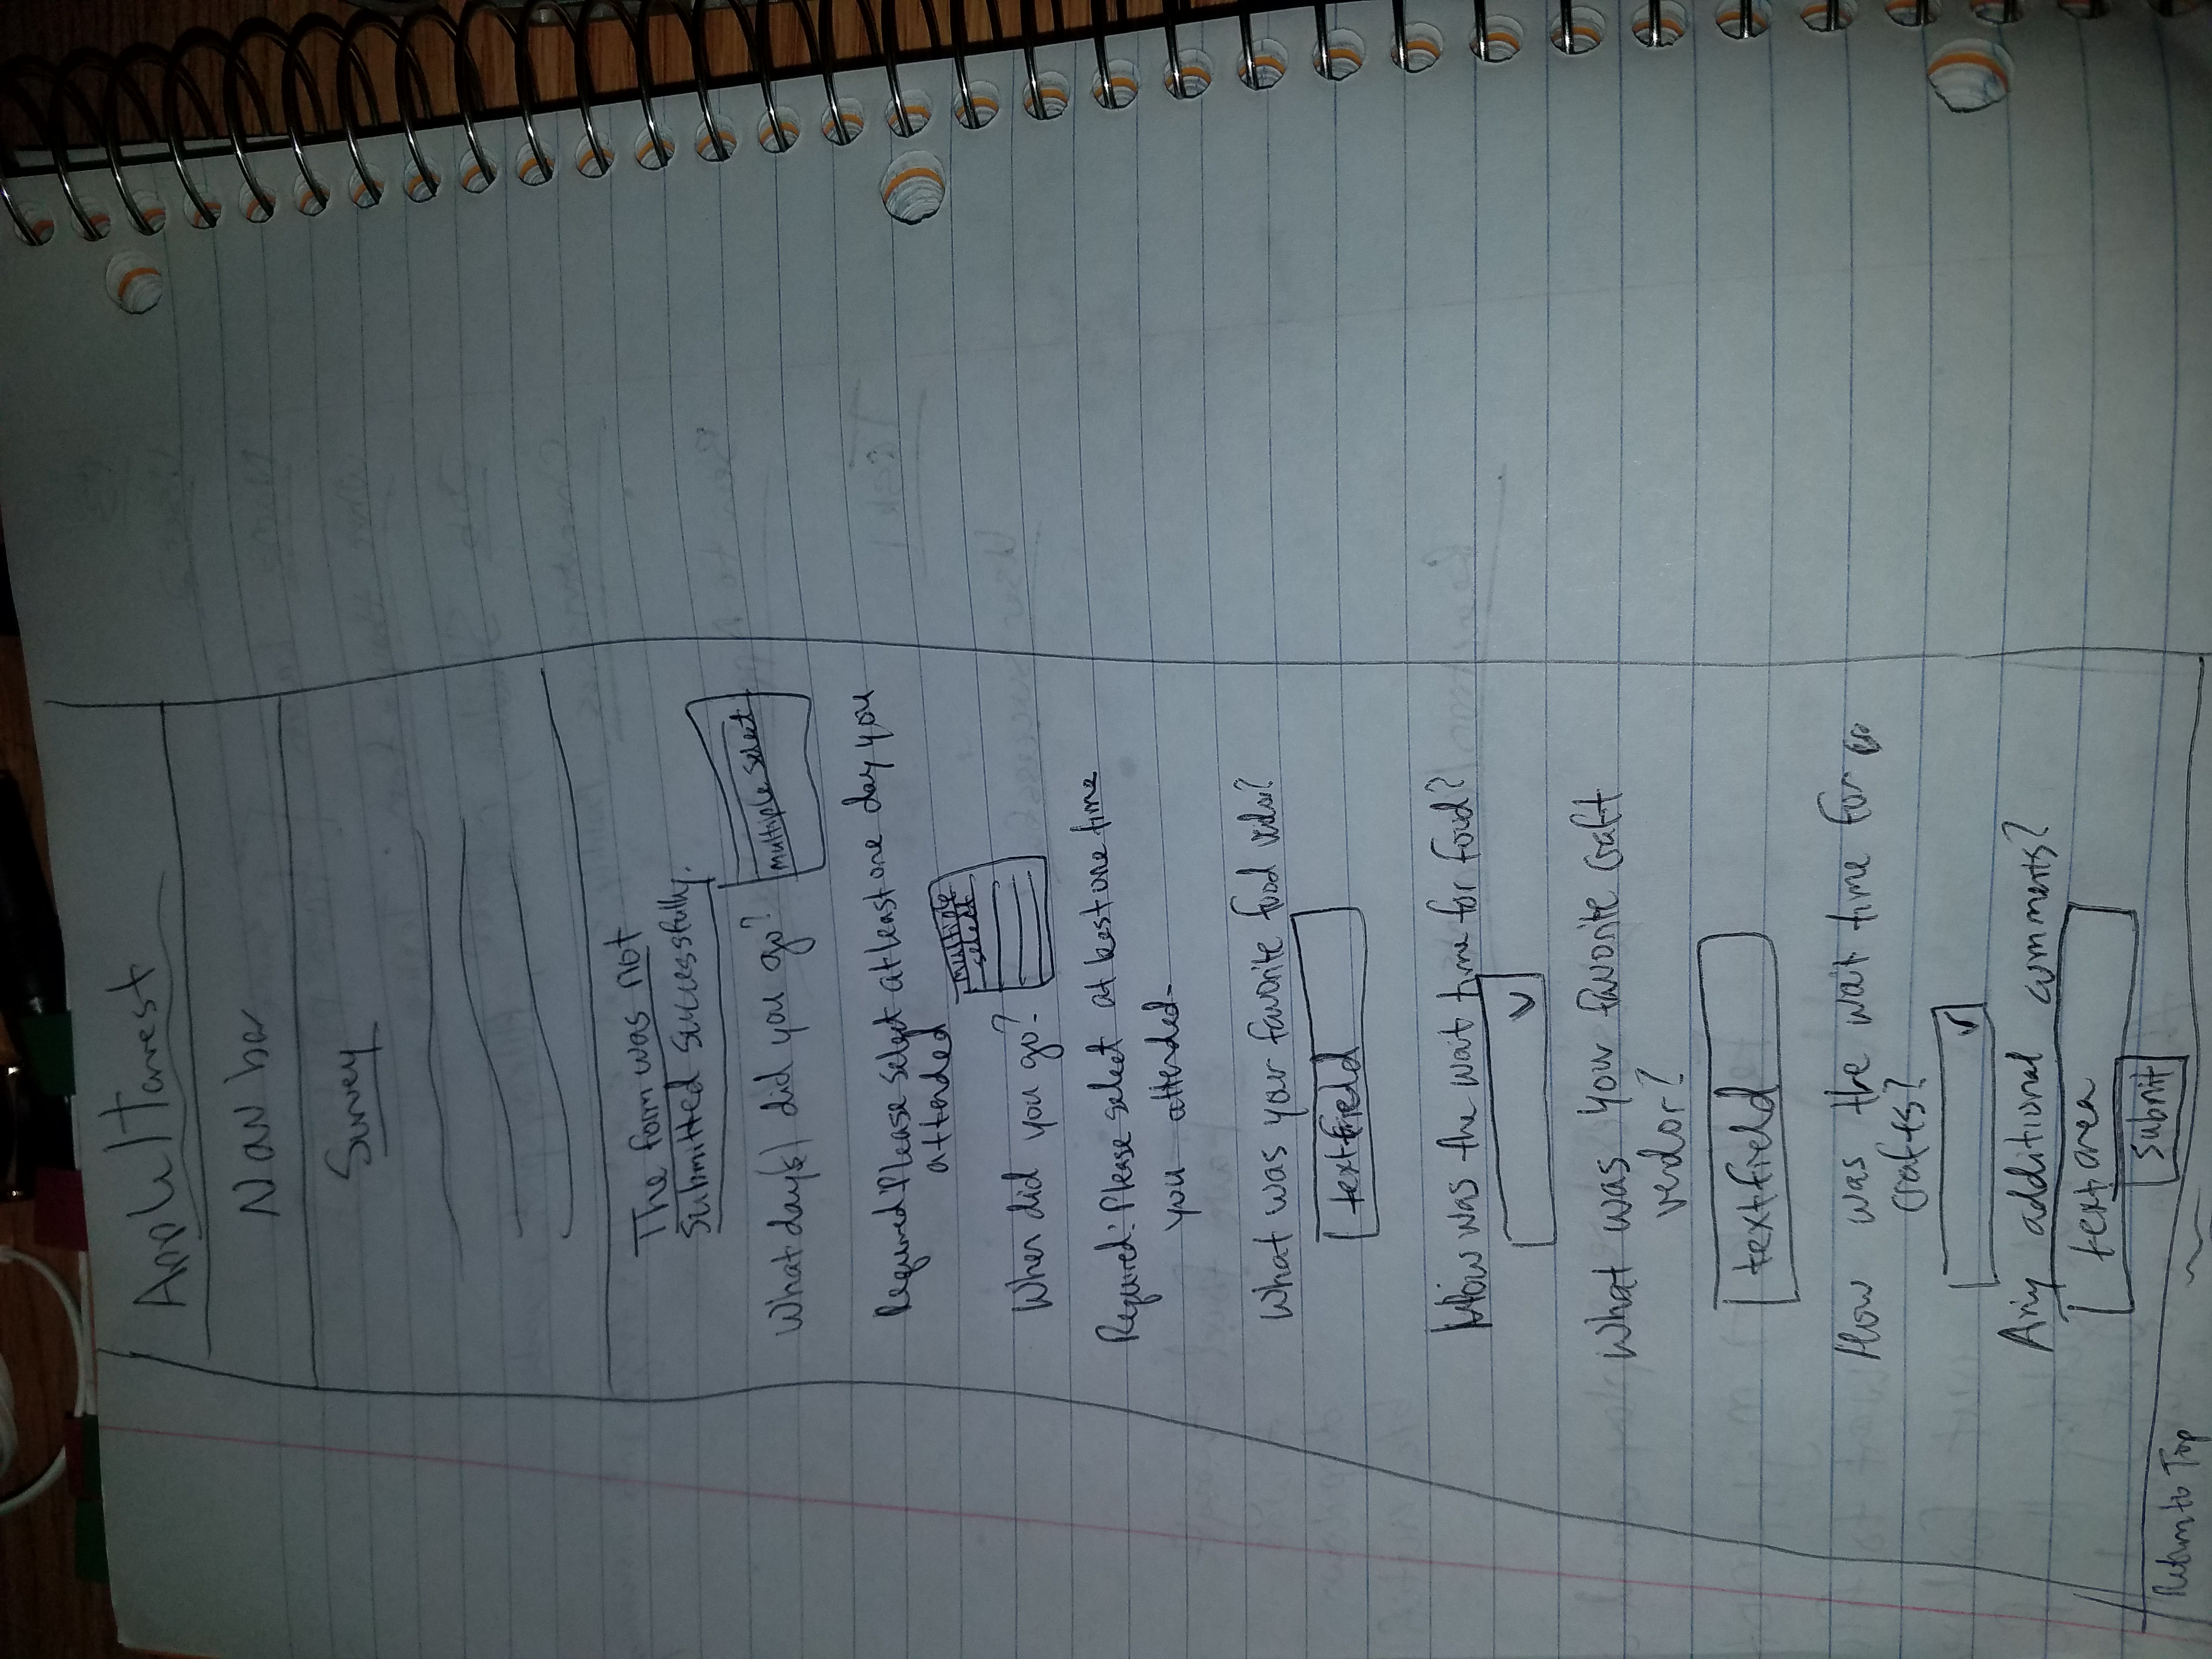 Apple Harvest
Nav bar
Survey
The form was not
submitted successfully.
What day(s) did you go?
multiple select
Required: Please select at least one day you
attended
multiple
select
When did you go?
Required: Please select at least one time
you attended.
What was your favorite food vendor?
textfield
How was the wait time for food?
What was your favorite craft
vendor?
textfield
How was the wait time for
crafts?
Any additional comments?
textarea
Submit
Return to Top